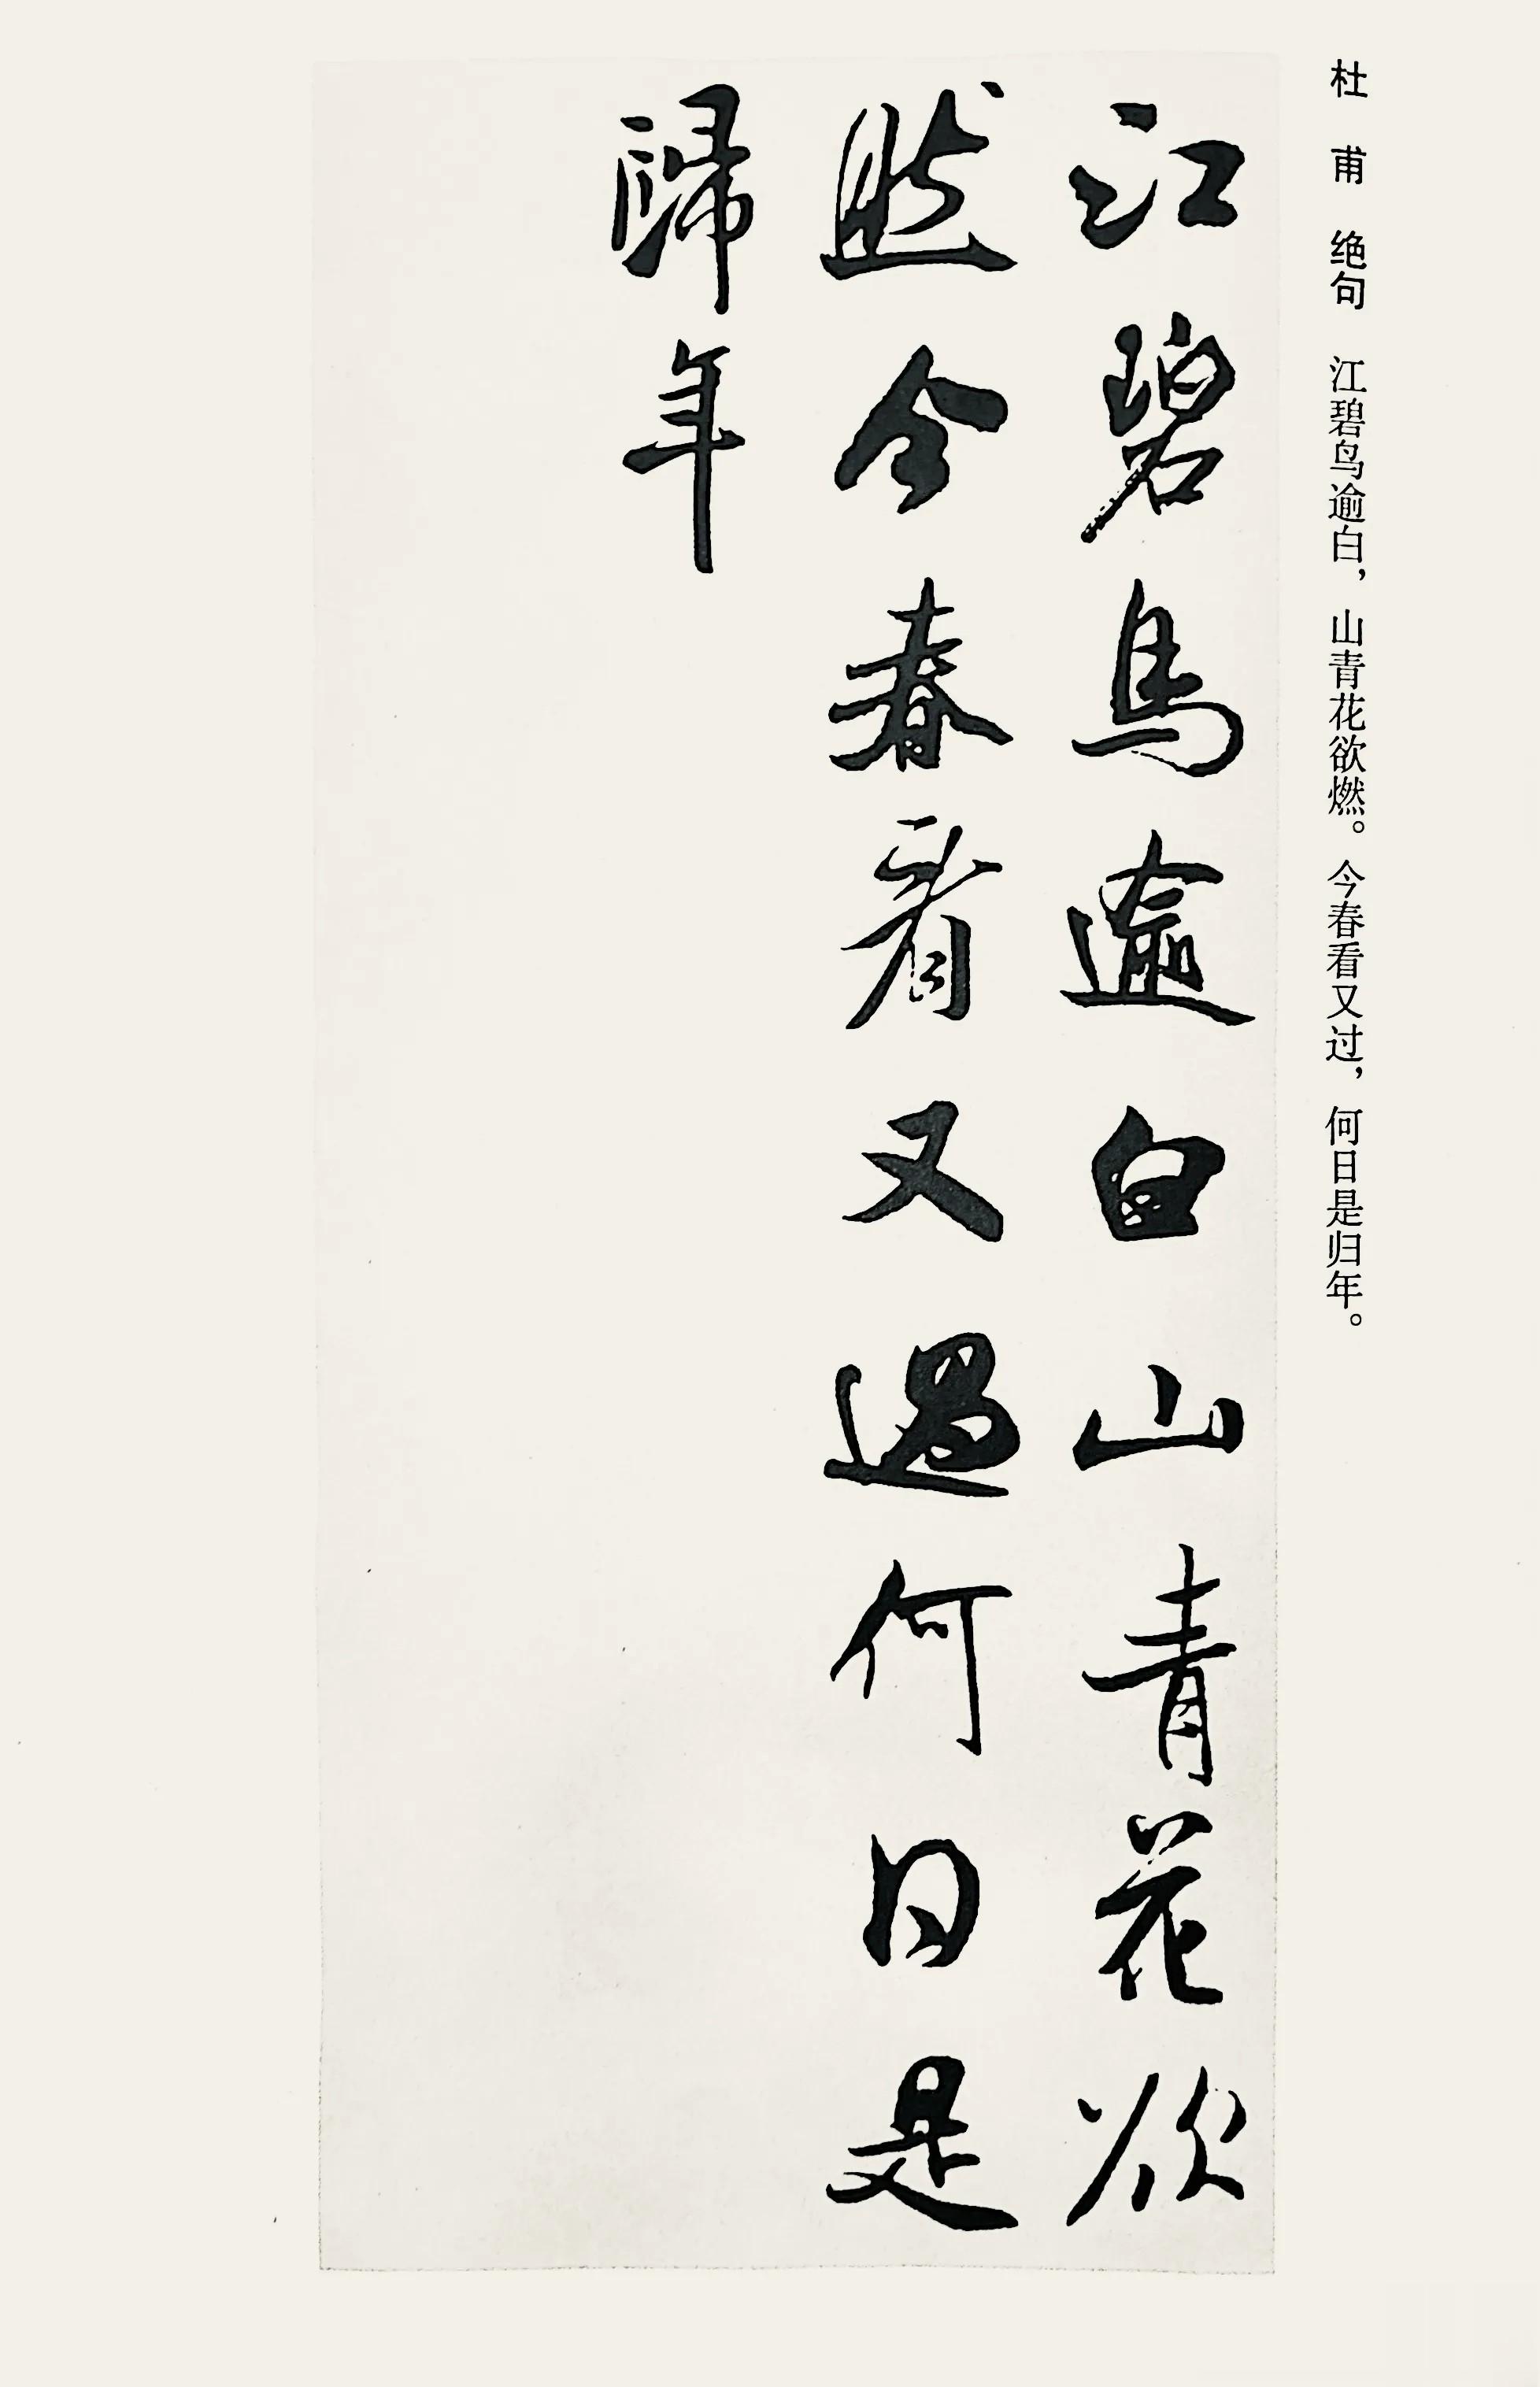 杜甫 绝句 江碧鸟逾白，山青花欲燃。今春看又过，何日是归年。
江碧鳥逾白山青花欲
然今春看又過何日是
歸年